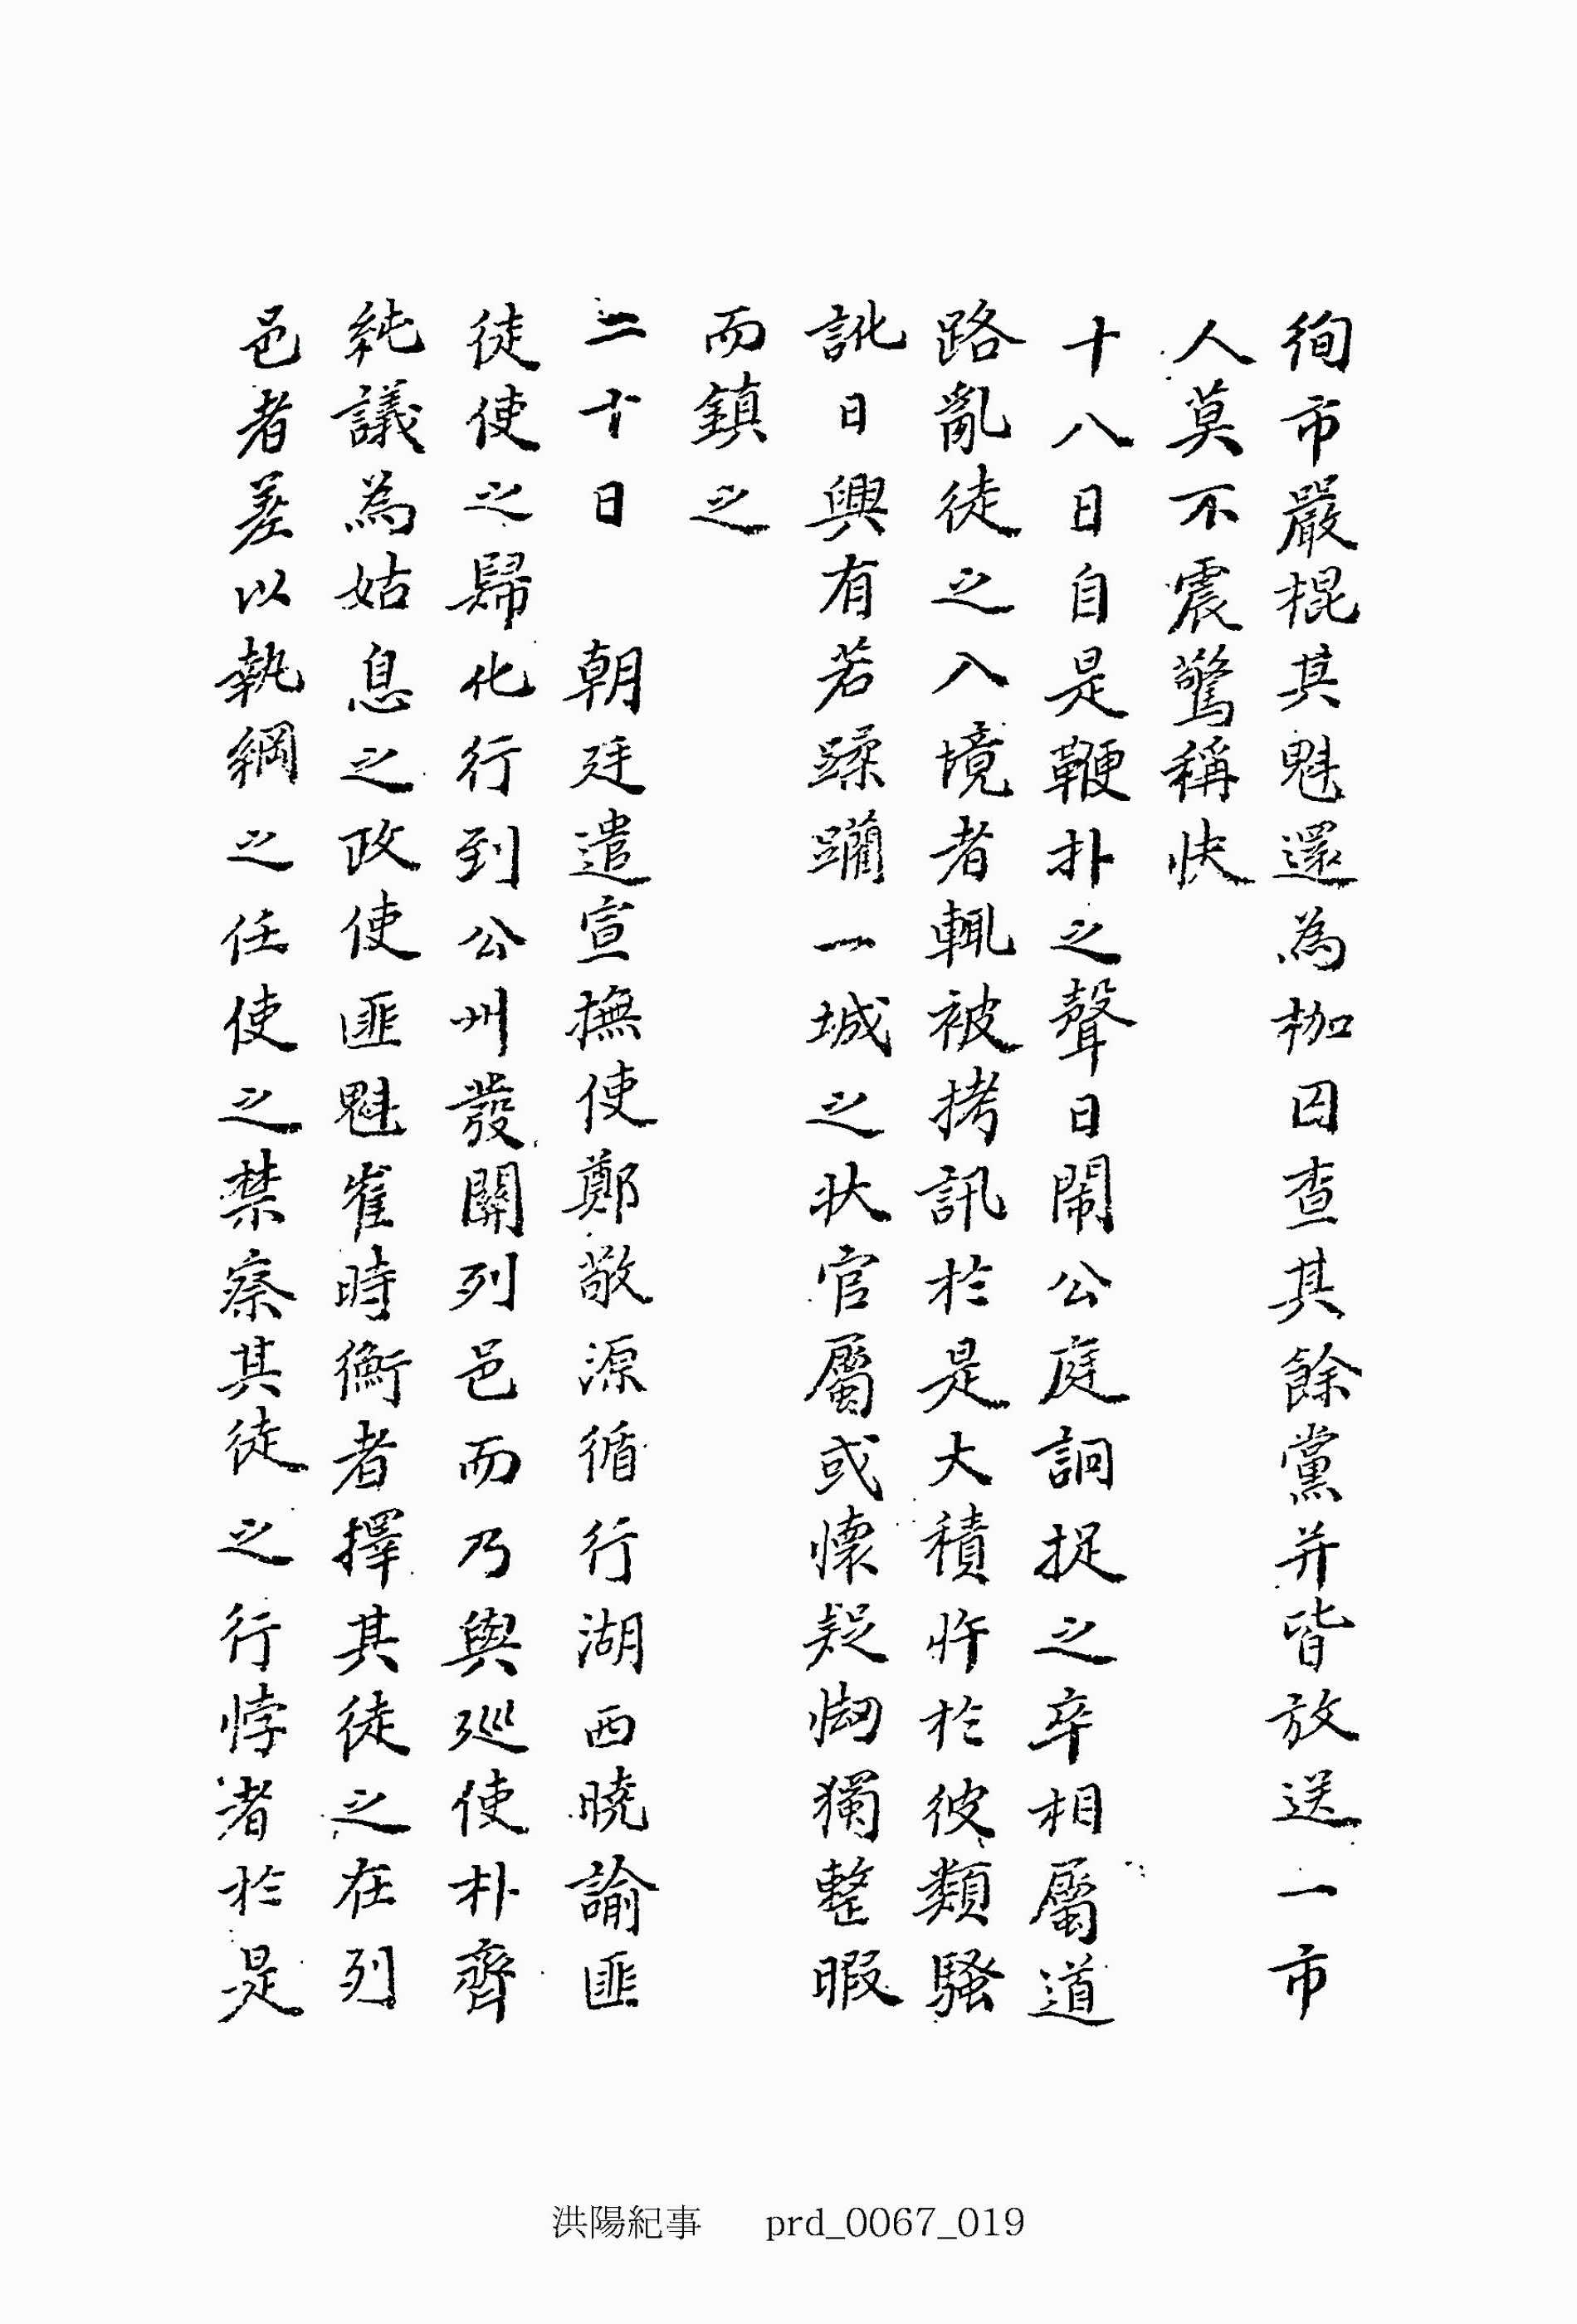 徇市嚴棍其魁還為枷囚查其餘黨并皆放送一市
人莫不震驚稱快
十八日自是鞭扑之聲日鬧公庭詗捉之卒相屬道
路亂徒之入境者輒被拷訊於是大積忤於彼類騷
訛日興有若蹂躪一城之狀官屬或懷疑㤼獨整暇
而鎮之
二十日 朝廷遣宣撫使鄭敬源循行湖西曉諭匪
徒使之歸化行到公州發關列邑而乃與巡使朴齊
純議為姑息之政使匪魁崔時衡者擇其徒之在列
邑者差以執綱之任使之禁察其徒之行悖者於是
洪陽紀事 prd_0067_019